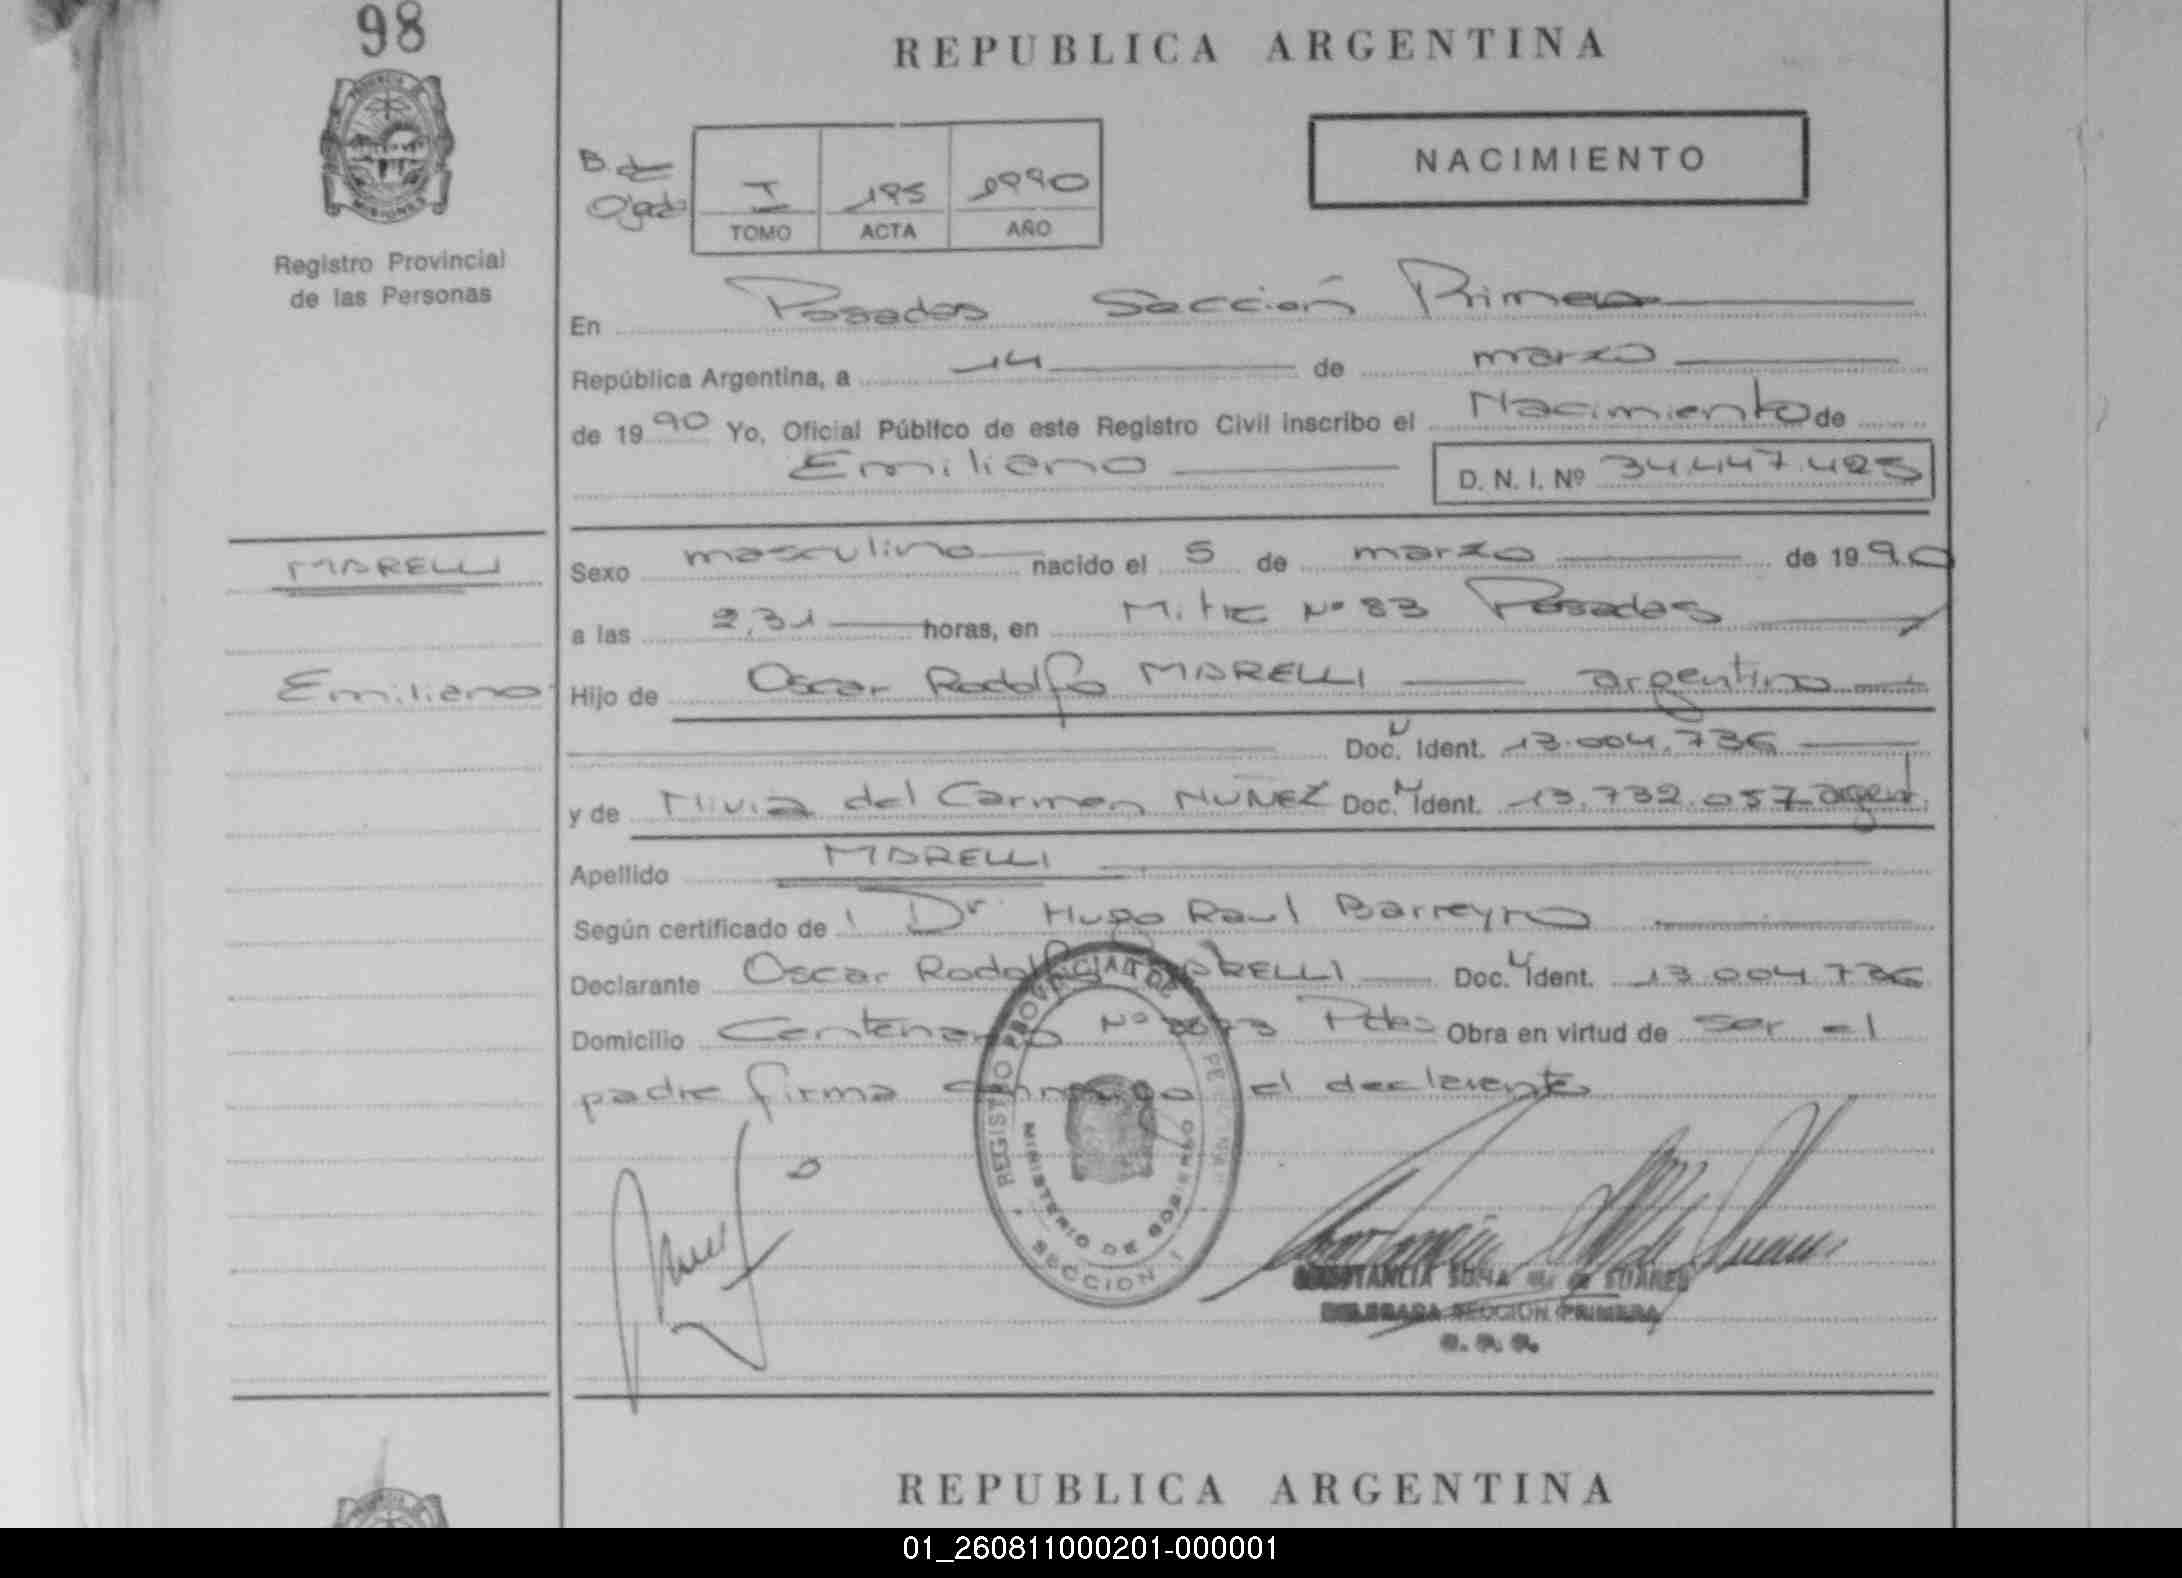 98
REPUBLICA ARGENTINA
PROVINCIA
MISIONES
Registro Provincial
de las Personas
NACIMIENTO
B. de
I 195 1990
TOMO ACTA AÑO
En Posadas Sección Primera
República Argentina, a 14 de marzo
de 1990 Yo, Oficial Público de este Registro Civil inscribo el Nacimiento de
Emiliano D. N. I. Nº 34.447.425
MARELLI
Emiliano
Sexo masculino nacido el 5 de marzo de 1990
a las 2,31 horas, en Mitre Nº 83 Posadas
Hijo de Oscar Rodolfo MARELLI argentino
Doc. Ident. 13.004.736
y de Nivia del Carmen NUÑEZ Doc. Ident. 13.732.057 argent.
Apellido MARELLI
Según certificado de Dr. Hugo Raul Barreyro
Declarante Oscar Rodolfo MARELLI Doc. Ident. 13.004.736
Domicilio Centenario Nº Pdas Obra en virtud de ser el
padre firma conmigo el declarante
REGISTRO PROVINCIAL DE
MINISTERIO DE GOBIERNO
SECCION 1
CONSTANCIA DE SUARES
DELEGADA SECCION PRIMERA
REPUBLICA ARGENTINA
01_260811000201-000001